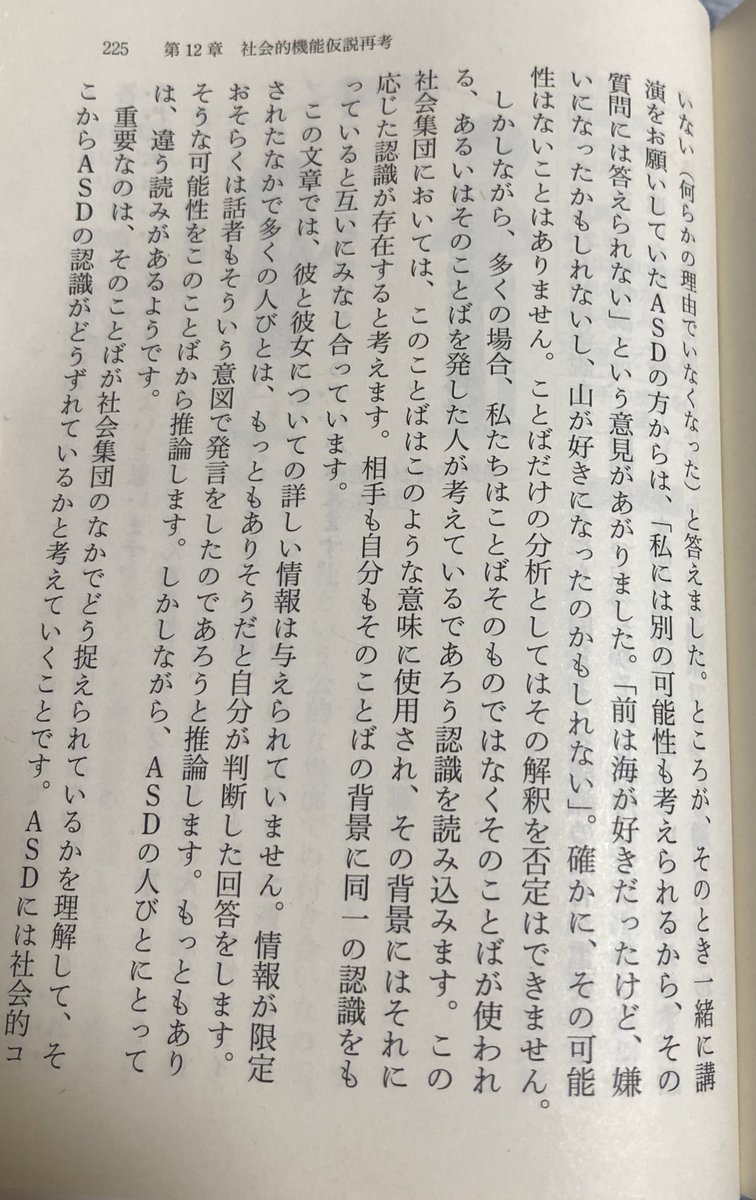 225　第12章　社会的機能仮説再考
いない（何らかの理由でいなくなった）と答えました。ところが、そのとき一緒に講
演をお願いしていたASDの方からは、「私には別の可能性も考えられるから、その
質問には答えられない」という意見があがりました。「前は海が好きだったけど、嫌
いになったかもしれないし、山が好きになったのかもしれない」。確かに、その可能
性はないことはありません。ことばだけの分析としてはその解釈を否定はできません。
しかしながら、多くの場合、私たちはことばそのものではなくそのことばが使われ
る、あるいはそのことばを発した人が考えているであろう認識を読み込みます。この
社会集団においては、このことばはこのような意味に使用され、その背景にはそれに
応じた認識が存在すると考えます。相手も自分もそのことばの背景に同一の認識をも
っていると互いにみなし合っています。
この文章では、彼と彼女についての詳しい情報は与えられていません。情報が限定
されたなかで多くの人びとは、もっともありそうだと自分が判断した回答をします。
おそらくは話者もそういう意図で発言をしたのであろうと推論します。もっともあり
そうな可能性をこのことばから推論します。しかしながら、ASDの人びとにとって
は、違う読みがあるようです。
重要なのは、そのことばが社会集団のなかでどう捉えられているかを理解して、そ
こからASDの認識がどうずれているかと考えていくことです。ASDには社会的コ